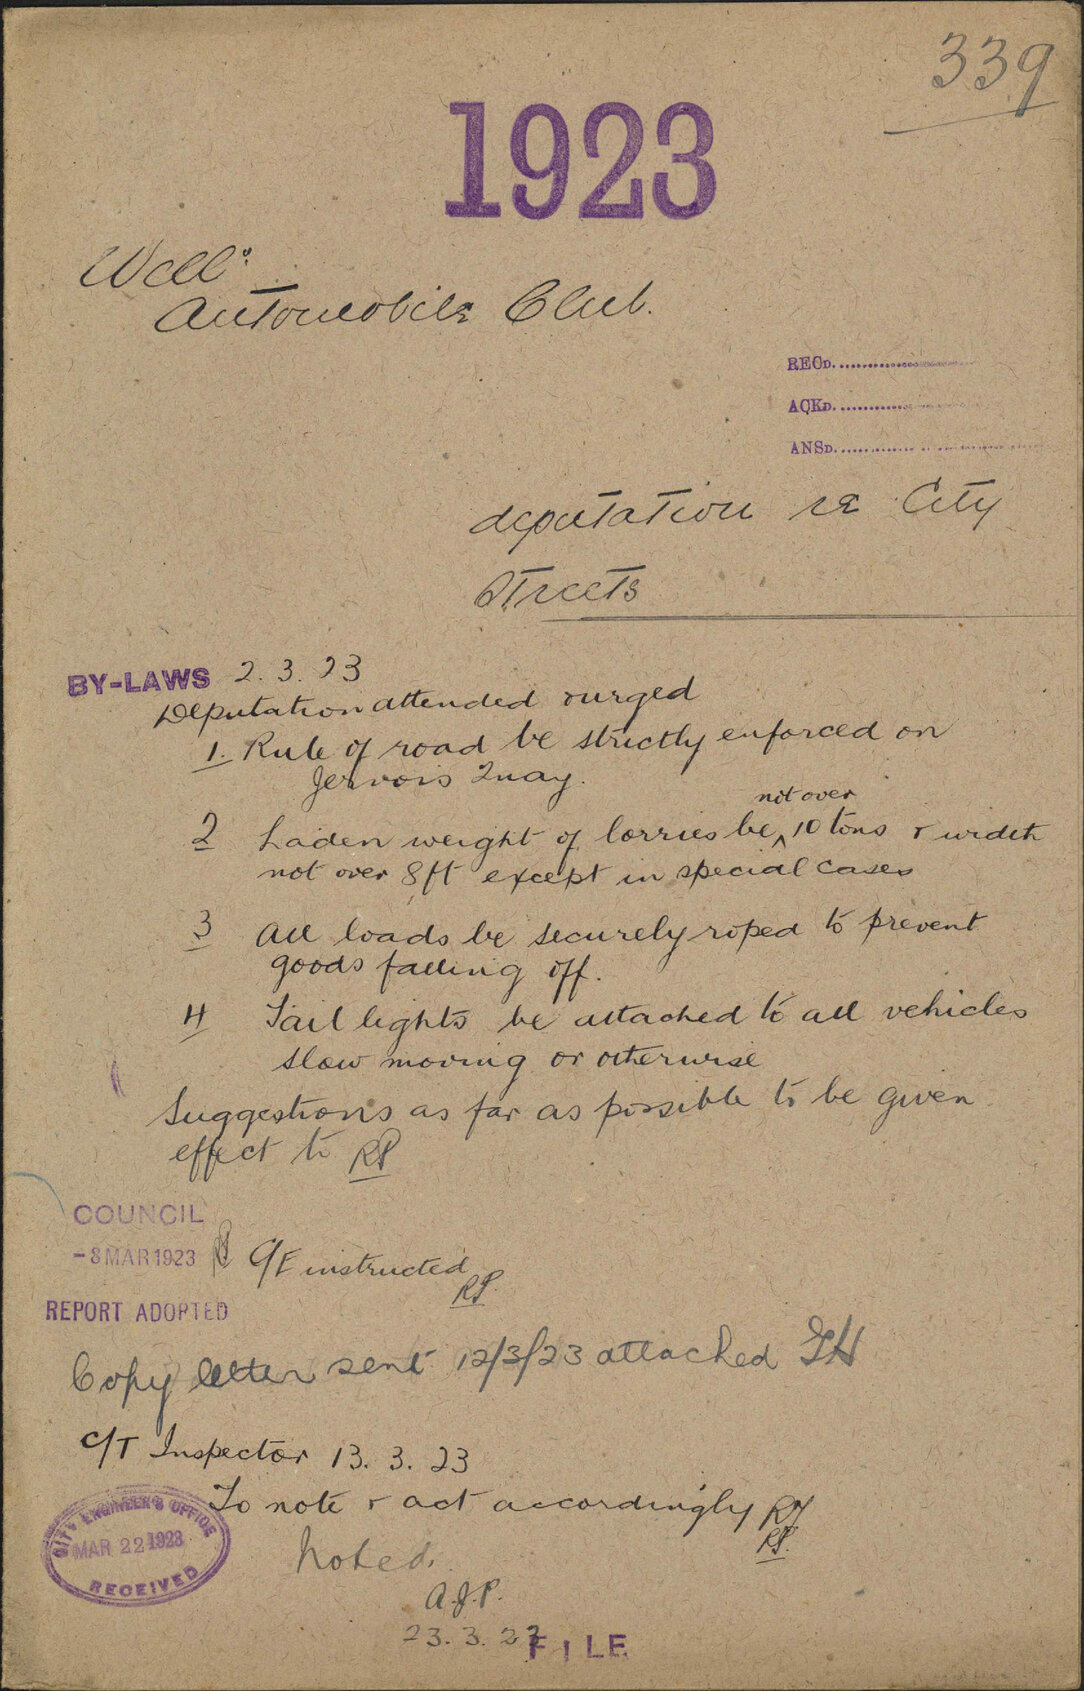 339
1923
Well:
Automobile Club.
RECD.
ACKD.
ANSD.
deputation re City
Streets
BY-LAWS 2.3.23
Deputation attended & urged
1. Rule of road be strictly enforced on
Jervois Quay.
not over
2 Laden weight of lorries be ^ 10 tons & width
not over 8 ft except in special cases
3 All loads be securely roped to prevent
goods falling off.
4 Tail lights be attached to all vehicles
slow moving or otherwise
Suggestions as far as possible to be given
effect to RP
COUNCIL
-8 MAR 1923 C/E instructed
RP.
REPORT ADOPTED
Copy letter sent 12/3/23 attached
C/T Inspector 13.3.23
To note & act accordingly
RP.
CITY ENGINEER'S OFFICE
MAR 22 1923
RECEIVED
Noted.
A.J.P.
23.3.23
FILE